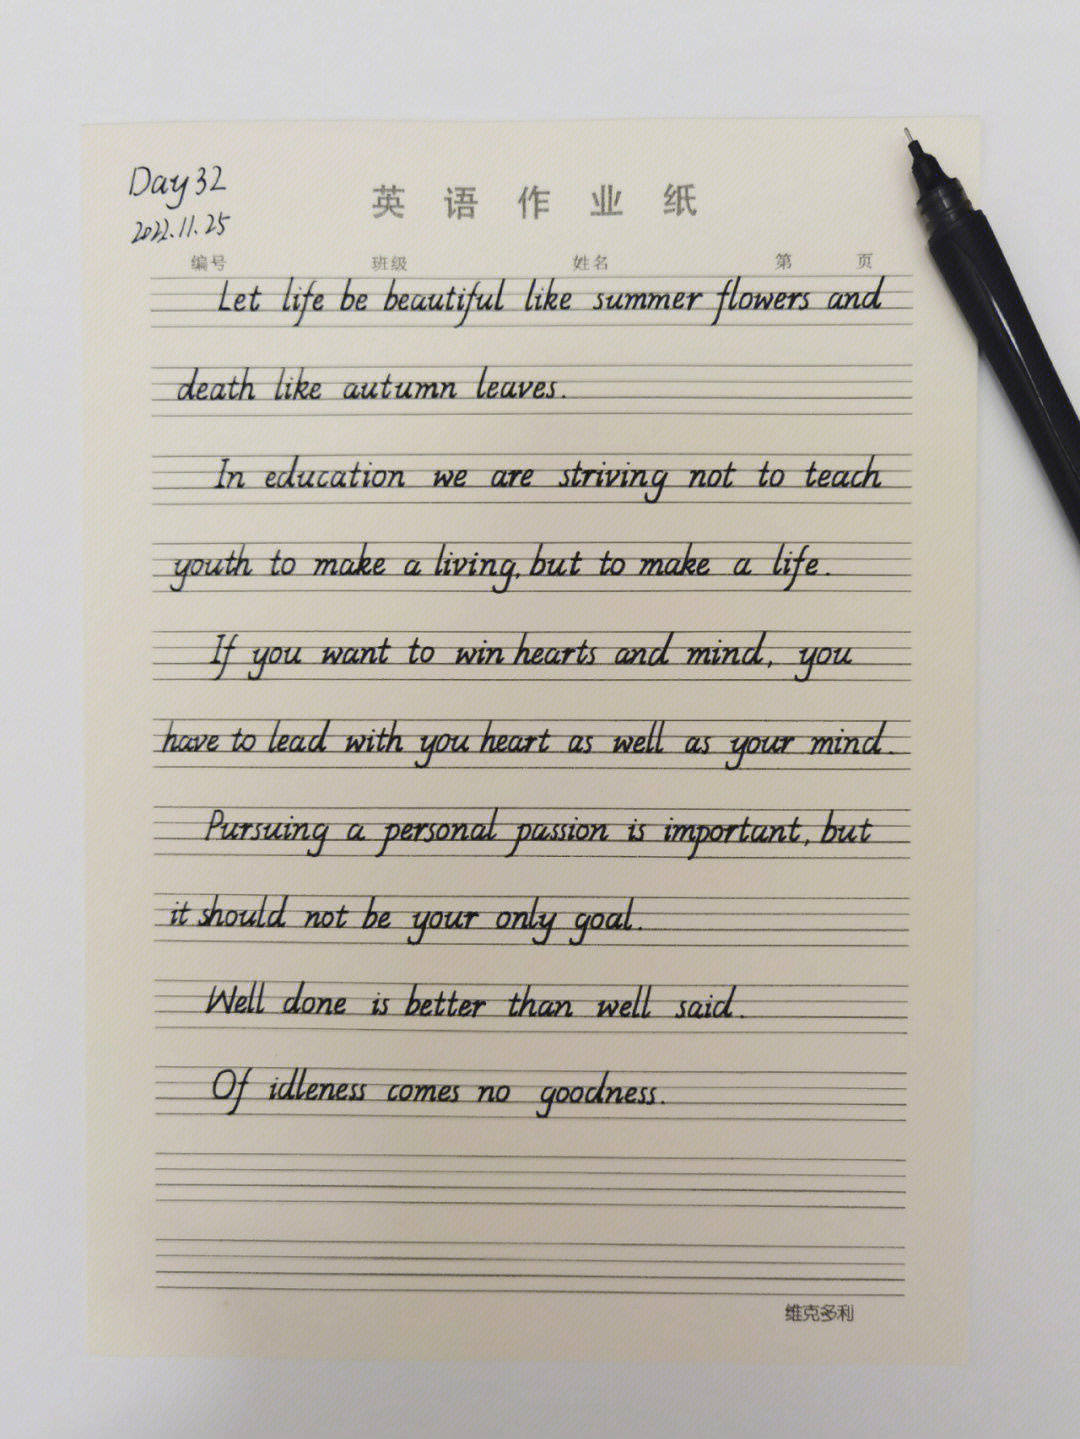 Day 32
2022.11.25
英语作业纸
编号 班级 姓名 第 页
Let life be beautiful like summer flowers and
death like autumn leaves.
In education we are striving not to teach
youth to make a living, but to make a life.
If you want to win hearts and mind, you
have to lead with you heart as well as your mind.
Pursuing a personal passion is important, but
it should not be your only goal.
Well done is better than well said.
Of idleness comes no goodness.
维克多利